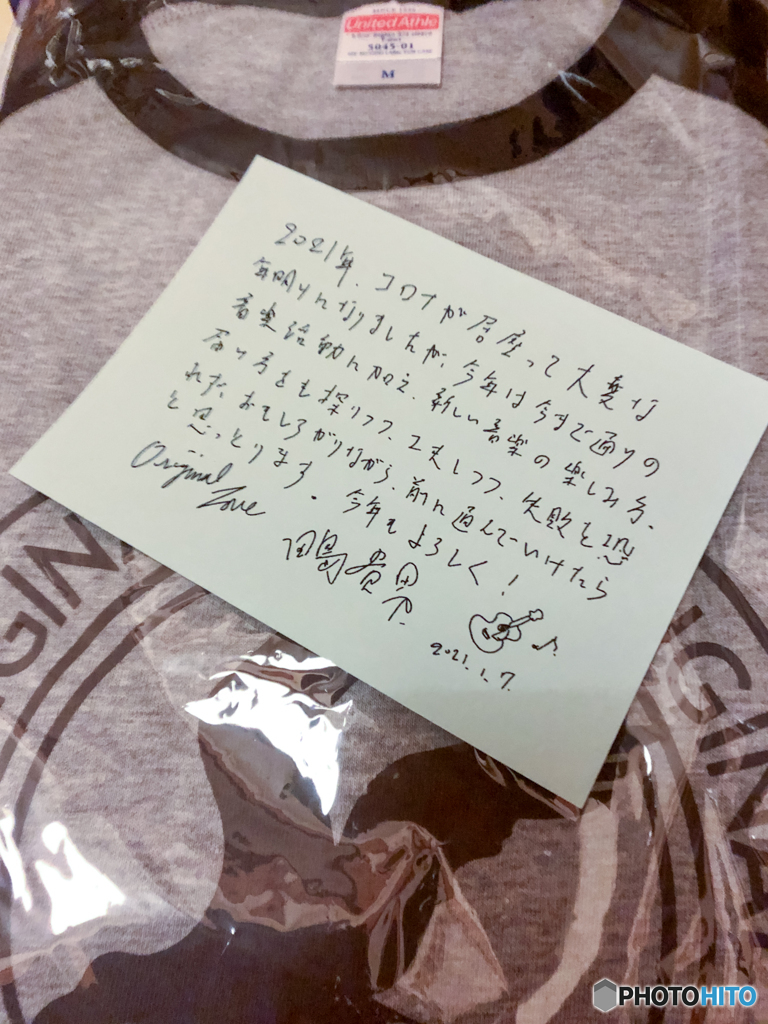 United Athle
5045-01
M
2021年、コロナが居座って大変な
年明けになりましたが、今年は今まで通りの
音楽活動に加え、新しい音楽の楽しみ方、
届け方をも探りつつ、工夫しつつ、失敗を恐
れず、おもしろがりながら、前に進んでいけたら
と思っとります。今年もよろしく!
Original
Love
田島貴男
2021.1.7.
GINA
IGINA
PHOTOHITO